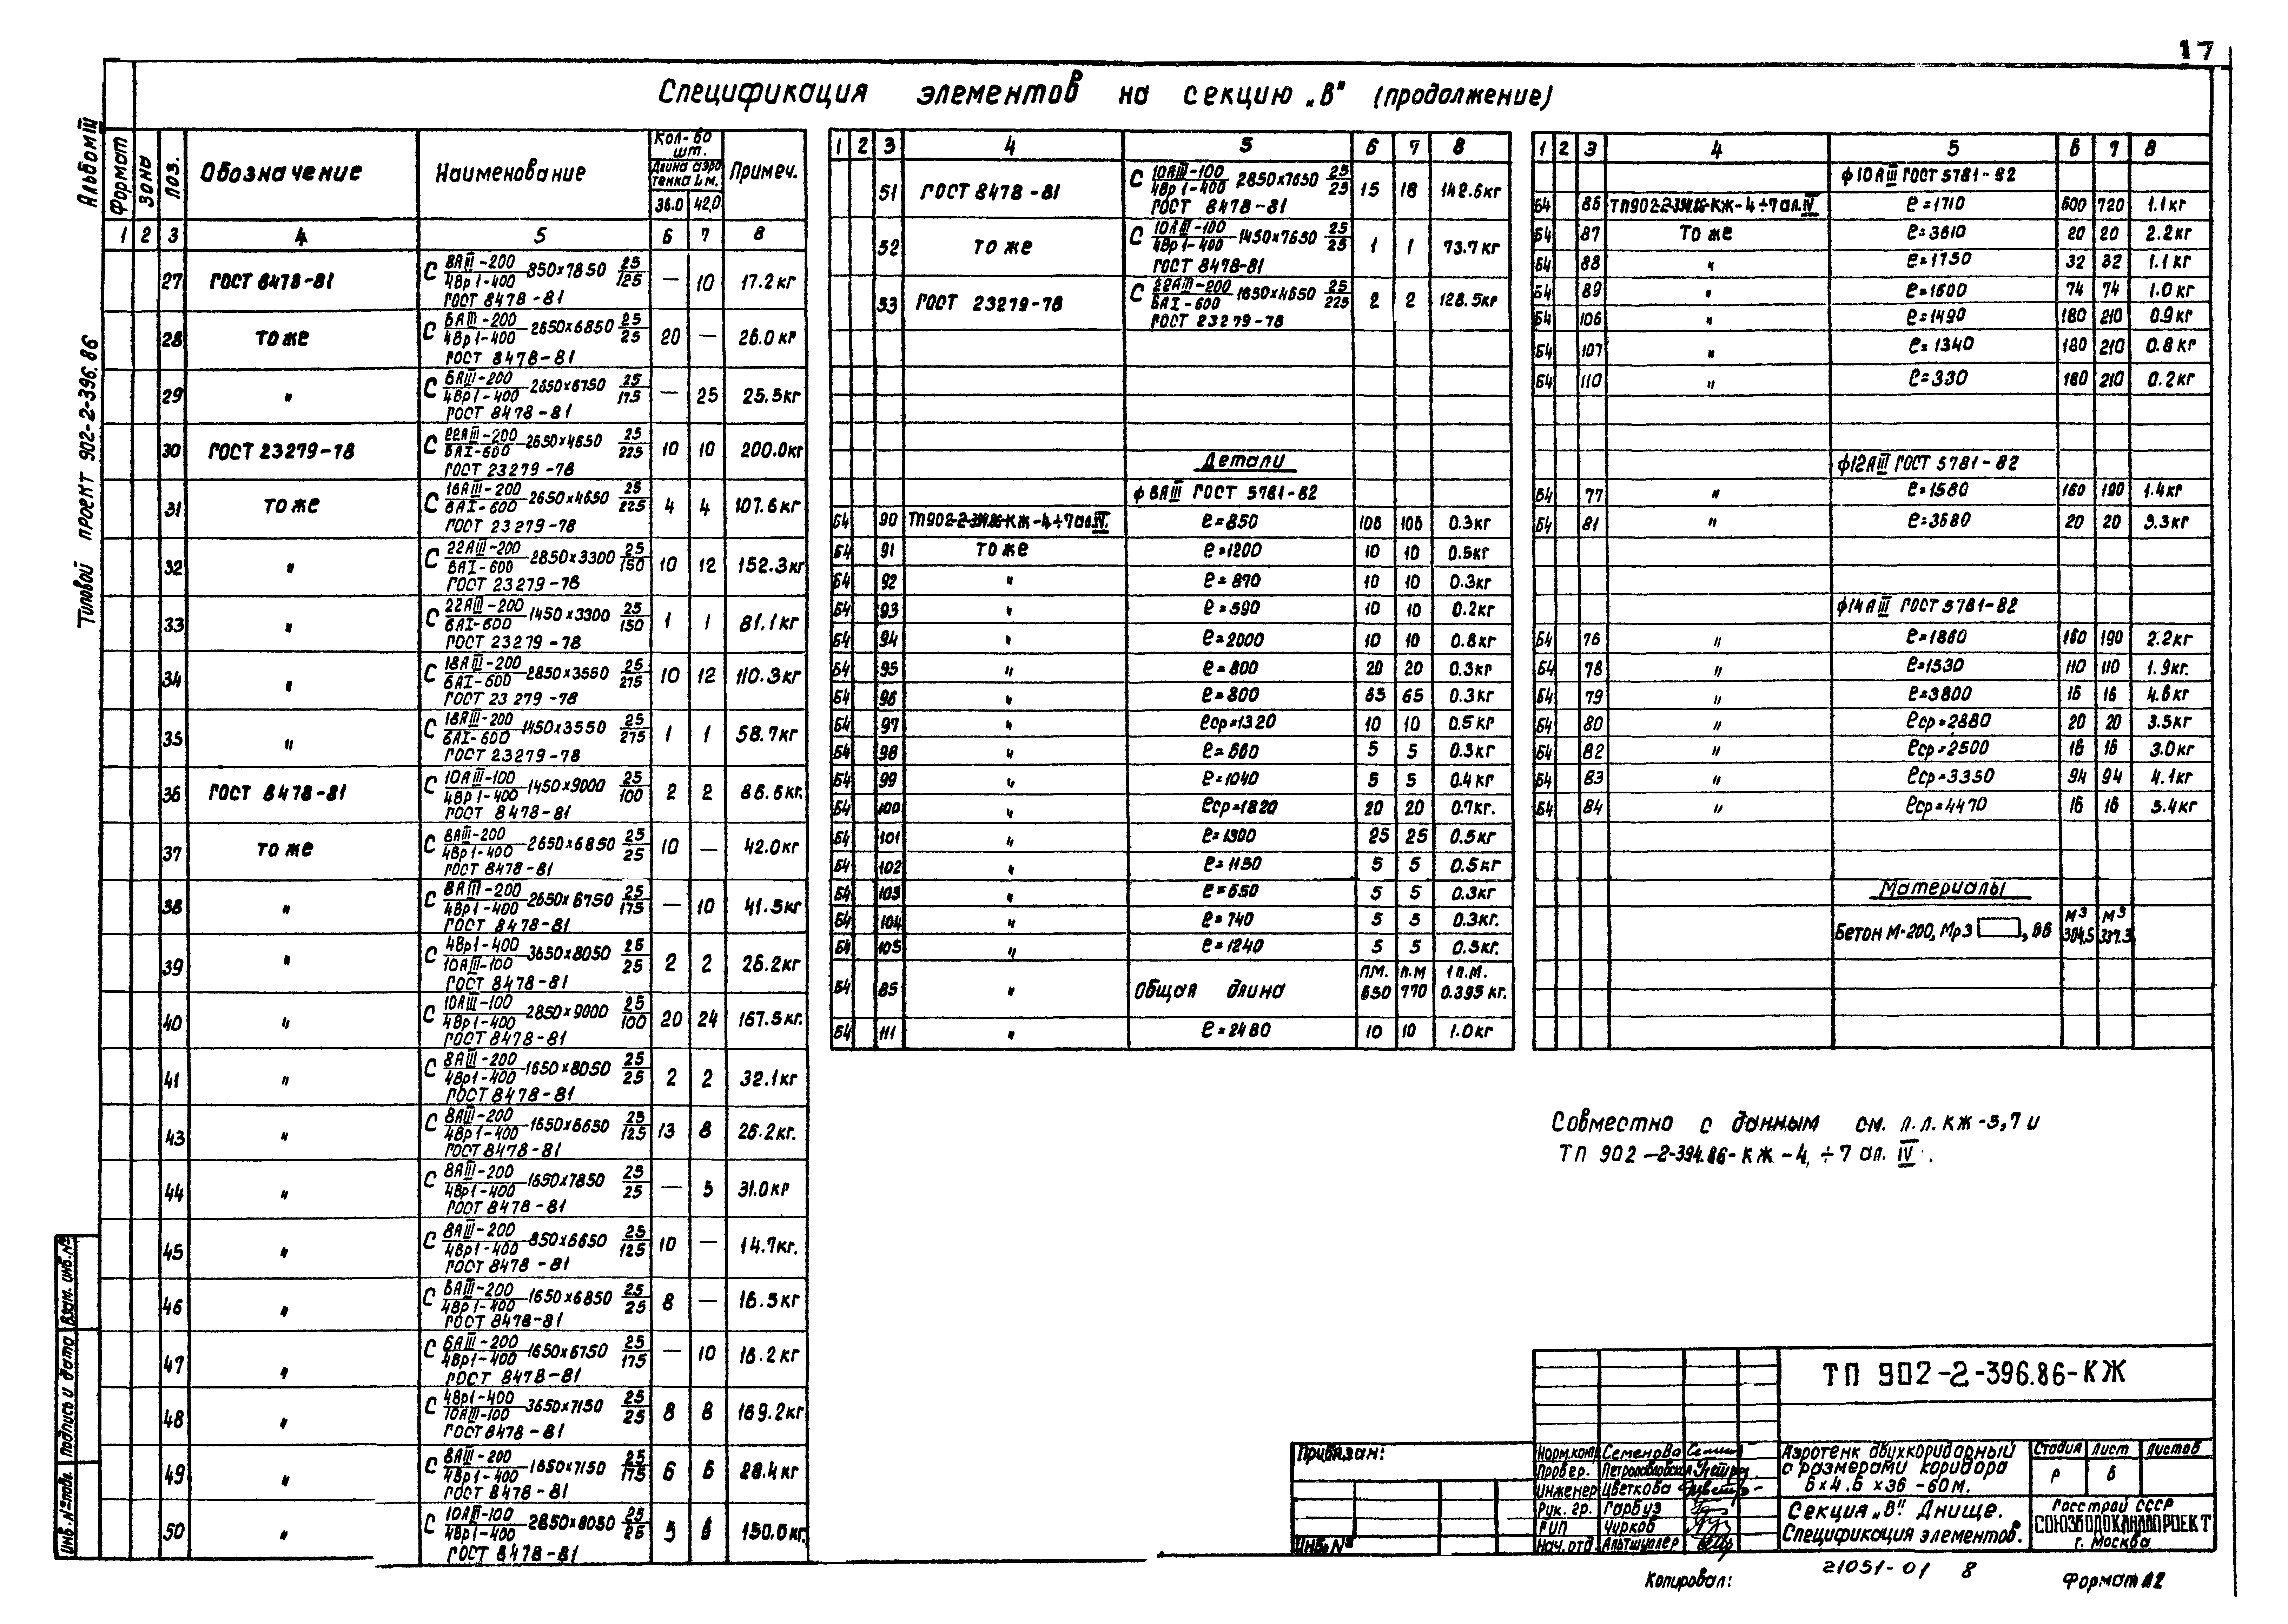 17
Спецификация элементов на секцию „В" (продолжение)
Альбом III
Типовой проект 902-2-396.86
Формат Зона Поз. Обозначение Наименование Кол-во шт. Примеч.
Длина аэротенка в м.
36.0 42.0
1 2 3 4 5 6 7 8
27 ГОСТ 8478-81 С 8АIII-200/4Вр1-400 850х7850 25/125 ГОСТ 8478-81 — 10 17.2кг
28 То же С 6АIII-200/4Вр1-400 2650х6850 25/25 ГОСТ 8478-81 20 — 26.0кг
29 " С 6АIII-200/4Вр1-400 2650х6750 25/175 ГОСТ 8478-81 — 25 25.5кг
30 ГОСТ 23279-78 С 22АIII-200/6АI-600 2650х4650 25/225 ГОСТ 23279-78 10 10 200.0кг
31 То же С 16АIII-200/6АI-600 2650х4650 25/225 ГОСТ 23279-78 4 4 107.6кг
32 " С 22АIII-200/6АI-600 2850х3300 25/150 ГОСТ 23279-78 10 12 152.3кг
33 " С 22АIII-200/6АI-600 1450х3300 25/150 ГОСТ 23279-78 1 1 81.1кг
34 " С 18АIII-200/6АI-600 2850х3550 25/275 ГОСТ 23279-78 10 12 110.3кг
35 " С 18АIII-200/6АI-600 1450х3550 25/275 ГОСТ 23279-78 1 1 58.7кг
36 ГОСТ 8478-81 С 10АIII-100/4Вр1-400 1450х9000 25/100 ГОСТ 8478-81 2 2 86.6кг.
37 То же С 8АIII-200/4Вр1-400 2650х6850 25/25 ГОСТ 8478-81 10 — 42.0кг
38 " С 8АIII-200/4Вр1-400 2650х6750 25/175 ГОСТ 8478-81 — 10 41.5кг
39 " С 4Вр1-400/10АIII-100 3650х8050 25/25 ГОСТ 8478-81 2 2 26.2кг
40 " С 10АIII-100/4Вр1-400 2850х9000 25/100 ГОСТ 8478-81 20 24 167.5кг.
41 " С 8АIII-200/4Вр1-400 1650х8050 25/25 ГОСТ 8478-81 2 2 32.1кг
43 " С 8АIII-200/4Вр1-400 1650х6650 25/125 ГОСТ 8478-81 13 8 26.2кг.
44 " С 8АIII-200/4Вр1-400 1650х7850 25/25 ГОСТ 8478-81 — 5 31.0кг
45 " С 8АIII-200/4Вр1-400 850х6650 25/125 ГОСТ 8478-81 10 — 14.7кг.
46 " С 6АIII-200/4Вр1-400 1650х6850 25/25 ГОСТ 8478-81 8 — 16.5кг
47 " С 6АIII-200/4Вр1-400 1650х6750 25/175 ГОСТ 8478-81 — 10 16.2кг
48 " С 4Вр1-400/10АIII-100 3650х7150 25/25 ГОСТ 8478-81 8 8 169.2кг
49 " С 8АIII-200/4Вр1-400 1650х7150 25/175 ГОСТ 8478-81 6 6 28.4кг
50 " С 10АIII-100/4Вр1-400 2850х8050 25/25 ГОСТ 8478-81 5 6 150.0кг.
1 2 3 4 5 6 7 8
51 ГОСТ 8478-81 С 10АIII-100/4Вр1-400 2850х7650 25/25 ГОСТ 8478-81 15 18 142.6кг
52 То же С 10АIII-100/4Вр1-400 1450х7650 25/25 ГОСТ 8478-81 1 1 73.7кг
53 ГОСТ 23279-78 С 22АIII-200/6АI-600 1650х4650 25/225 ГОСТ 23279-78 2 2 128.5кг
Детали
ф8АIII ГОСТ 5781-82
Б4 90 ТП902-2-394.86-КЖ-4÷7 ал.IV. ℓ=850 108 108 0.3кг
Б4 91 То же ℓ=1200 10 10 0.5кг
Б4 92 " ℓ=870 10 10 0.3кг
Б4 93 " ℓ=590 10 10 0.2кг
Б4 94 " ℓ=2000 10 10 0.8кг
Б4 95 " ℓ=800 20 20 0.3кг
Б4 96 " ℓ=800 65 65 0.3кг
Б4 97 " ℓср=1320 10 10 0.5кг
Б4 98 " ℓ=660 5 5 0.3кг
Б4 99 " ℓ=1040 5 5 0.4кг
Б4 100 " ℓср=1820 20 20 0.7кг.
Б4 101 " ℓ=1300 25 25 0.5кг
Б4 102 " ℓ=1150 5 5 0.5кг
Б4 103 " ℓ=650 5 5 0.3кг
Б4 104 " ℓ=740 5 5 0.3кг.
Б4 105 " ℓ=1240 5 5 0.5кг.
Б4 85 " Общая длина п.м. 650 п.м 770 1п.м. 0.395кг.
Б4 111 " ℓ=2480 10 10 1.0кг
1 2 3 4 5 6 7 8
ф10АIII ГОСТ 5781-82
Б4 86 ТП902-2-394.86-КЖ-4÷7 ал.IV ℓ=1710 600 720 1.1кг
Б4 87 То же ℓ=3610 20 20 2.2кг
Б4 88 " ℓ=1750 32 32 1.1кг
Б4 89 " ℓ=1600 74 74 1.0кг
Б4 106 " ℓ=1490 180 210 0.9кг
Б4 107 " ℓ=1340 180 210 0.8кг
Б4 110 " ℓ=330 180 210 0.2кг
ф12АIII ГОСТ 5781-82
Б4 77 " ℓ=1580 160 190 1.4кг
Б4 81 " ℓ=3680 20 20 3.3кг
ф14АIII ГОСТ 5781-82
Б4 76 " ℓ=1860 160 190 2.2кг
Б4 78 " ℓ=1530 110 110 1.9кг.
Б4 79 " ℓ=3800 16 16 4.6кг
Б4 80 " ℓср=2880 20 20 3.5кг
Б4 82 " ℓср=2500 16 16 3.0кг
Б4 83 " ℓср=3350 94 94 4.1кг
Б4 84 " ℓср=4470 16 16 5.4кг
Материалы
Бетон М-200, Мрз , В6 м3 304.5 м3 357.3
Совместно с данным см. л.л. КЖ-5,7 и
ТП 902-2-394.86-КЖ-4÷7 ал. IV.
Инв.№подл. Подпись и дата Взам. инв.№
Привязан:
Инв.№
Норм.конт. Семенова
Провер. Петропавловская
Инженер Цветкова
Рук. гр. Гарбуз
ГИП Чирков
Нач.отд. Альтшуллер
ТП 902-2-396.86-КЖ
Аэротенк двухкоридорный
с размерами коридора
6х4.6х36-60м.
Стадия Лист Листов
Р 6
Секция „В". Днище.
Спецификация элементов.
Госстрой СССР
СОЮЗВОДОКАНАЛПРОЕКТ
г. Москва
Копировал:
21051-01 8
Формат А2